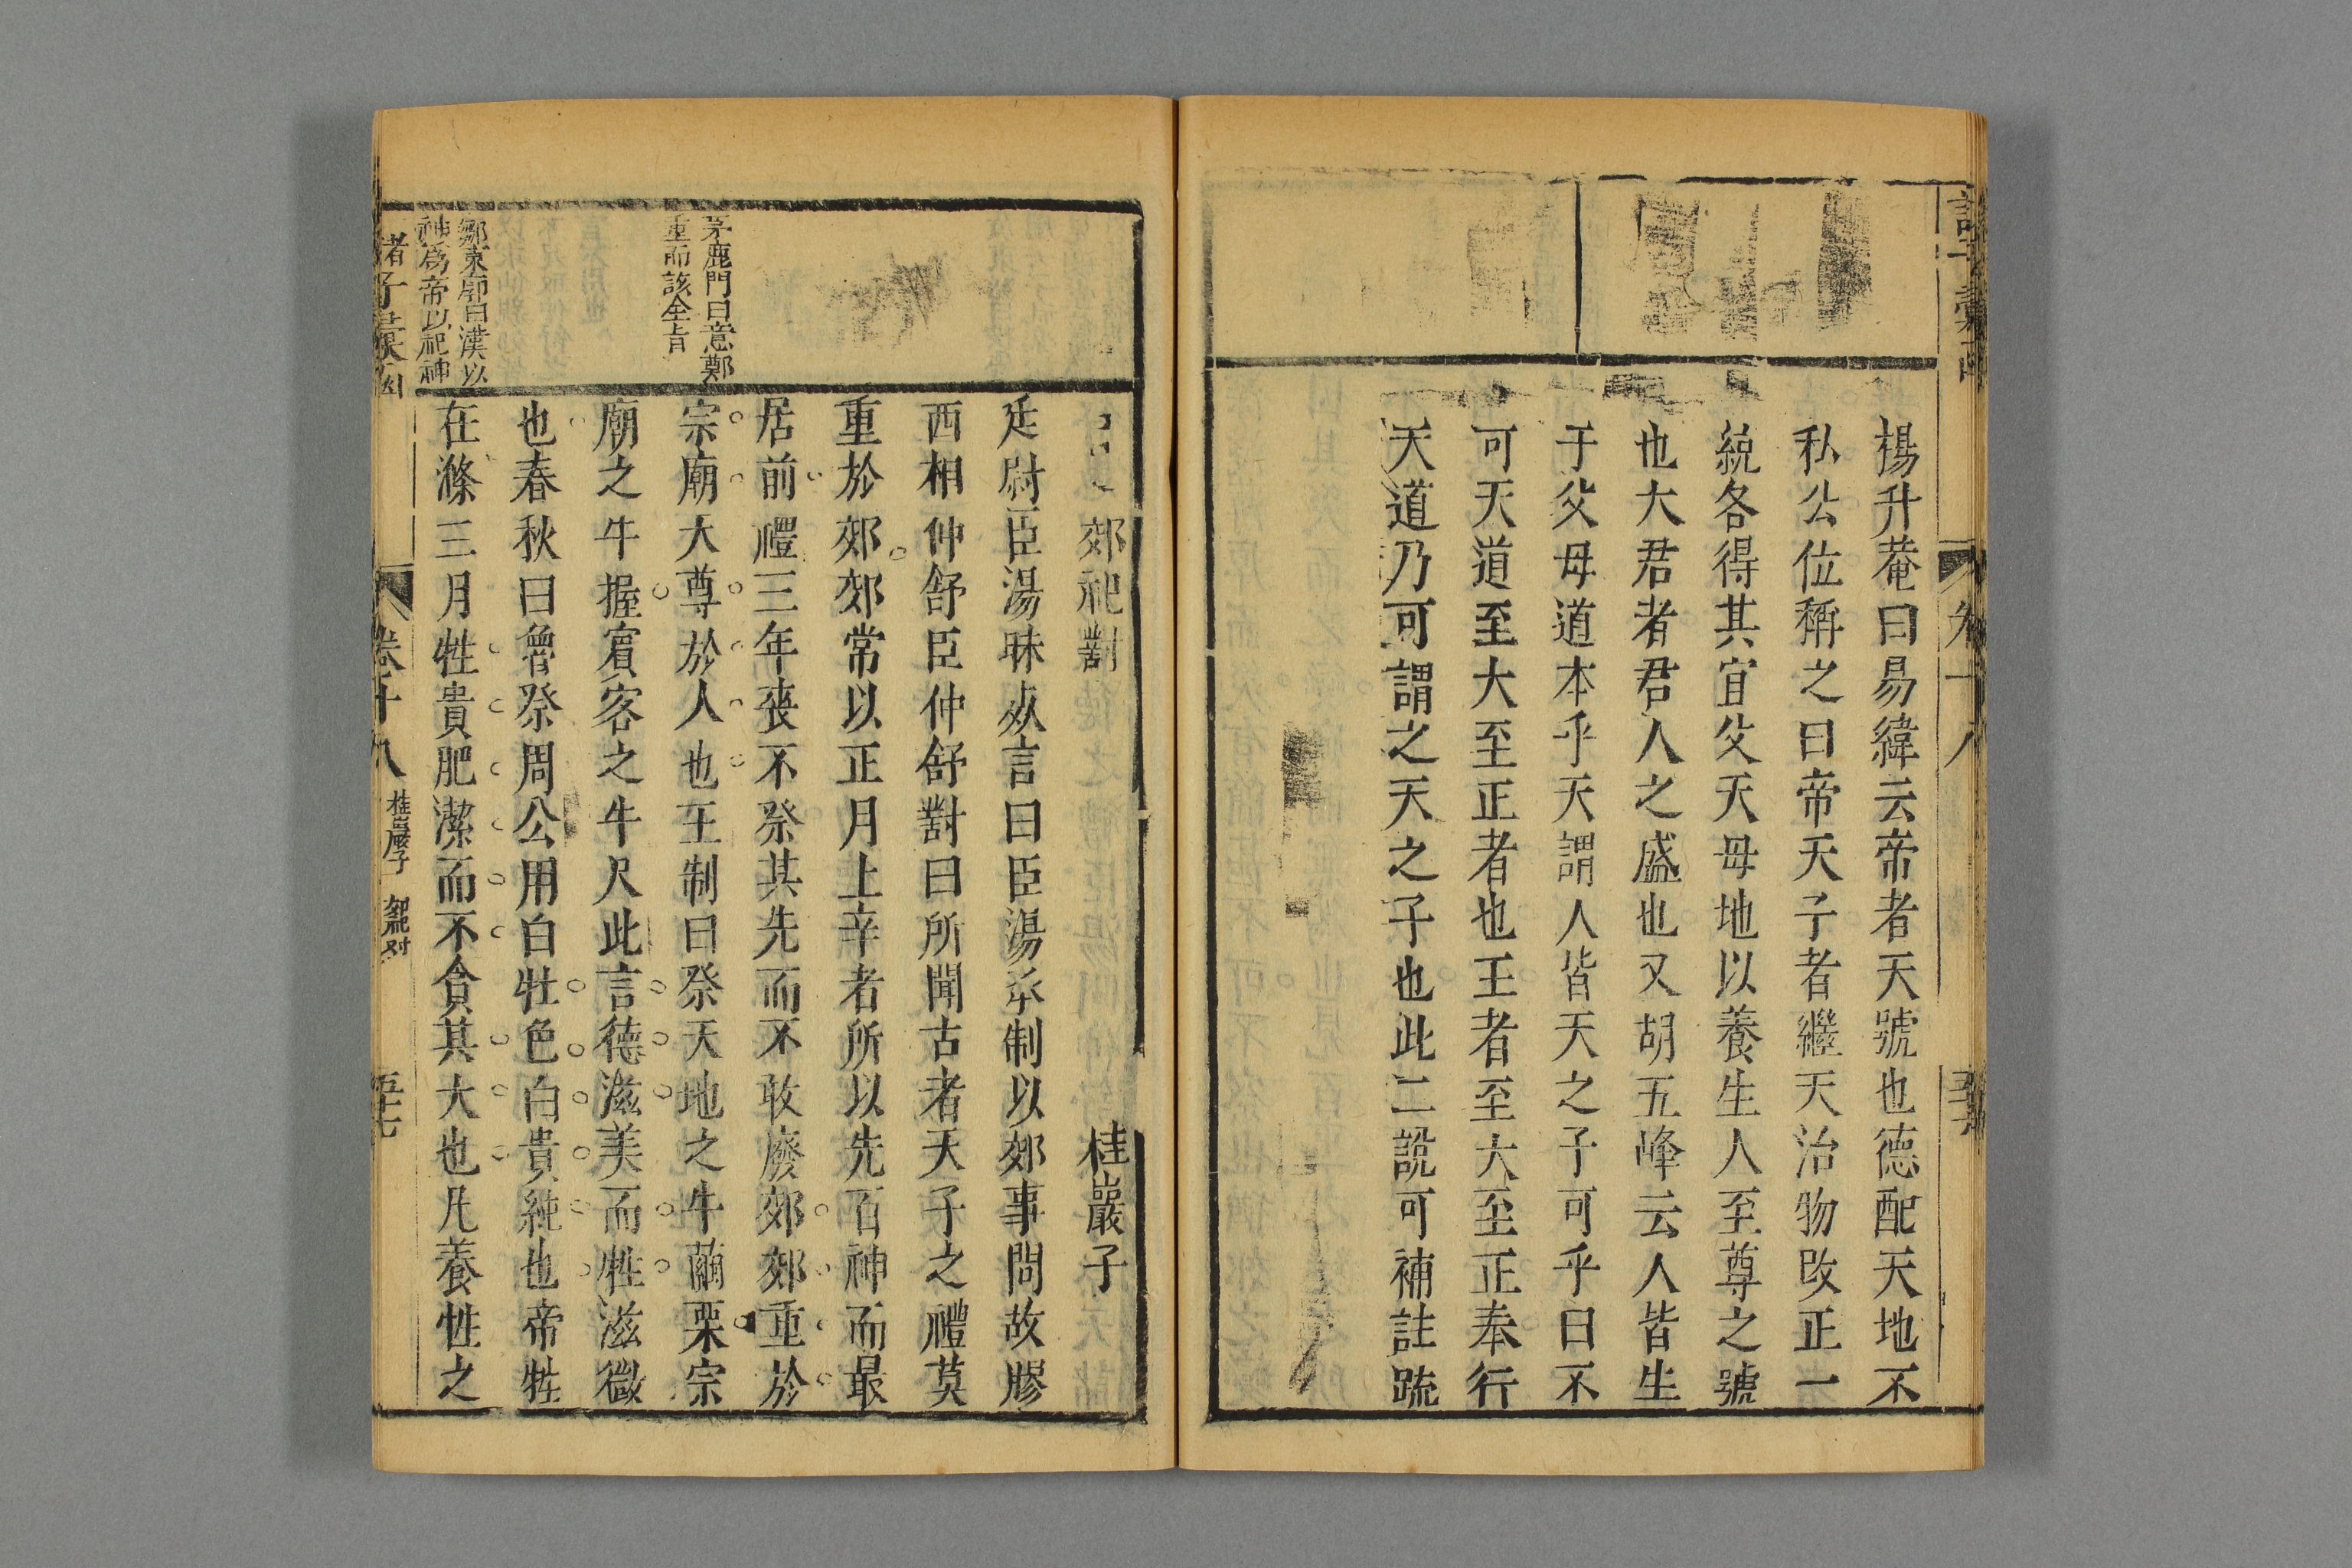 楊升菴曰易緯云帝者天號也德配天地不
私公位稱之曰帝天子者繼天治物改正一
統各得其宜父天母地以養生人至尊之號
也大君者君人之盛也又胡五峰云人皆生
于父母道本乎天謂人皆天之子可乎曰不
可天道至大至正者也王者至大至正奉行
天道乃可謂之天之子也此二說可補註疏
郊祀對 桂巖子
廷尉臣湯昧死言曰臣湯承制以郊事問故膠
西相仲舒臣仲舒對曰所聞古者天子之禮莫
重於郊郊常以正月上辛者所以先百神而最
居前禮三年喪不祭其先而不敢廢郊郊重於
茅鹿門曰意鄭
重而該全旨
宗廟大尊於人也王制曰祭天地之牛繭栗宗
廟之牛握賓客之牛尺此言德滋美而牲滋微
也春秋曰魯祭周公用白牡色白貴純也帝牲
鄒東廓曰漢以
神爲帝以祀神
在滌三月牲貴肥潔而不貪其大也凡養牲之
卷十八 桂巖子 郊祀対 五十七